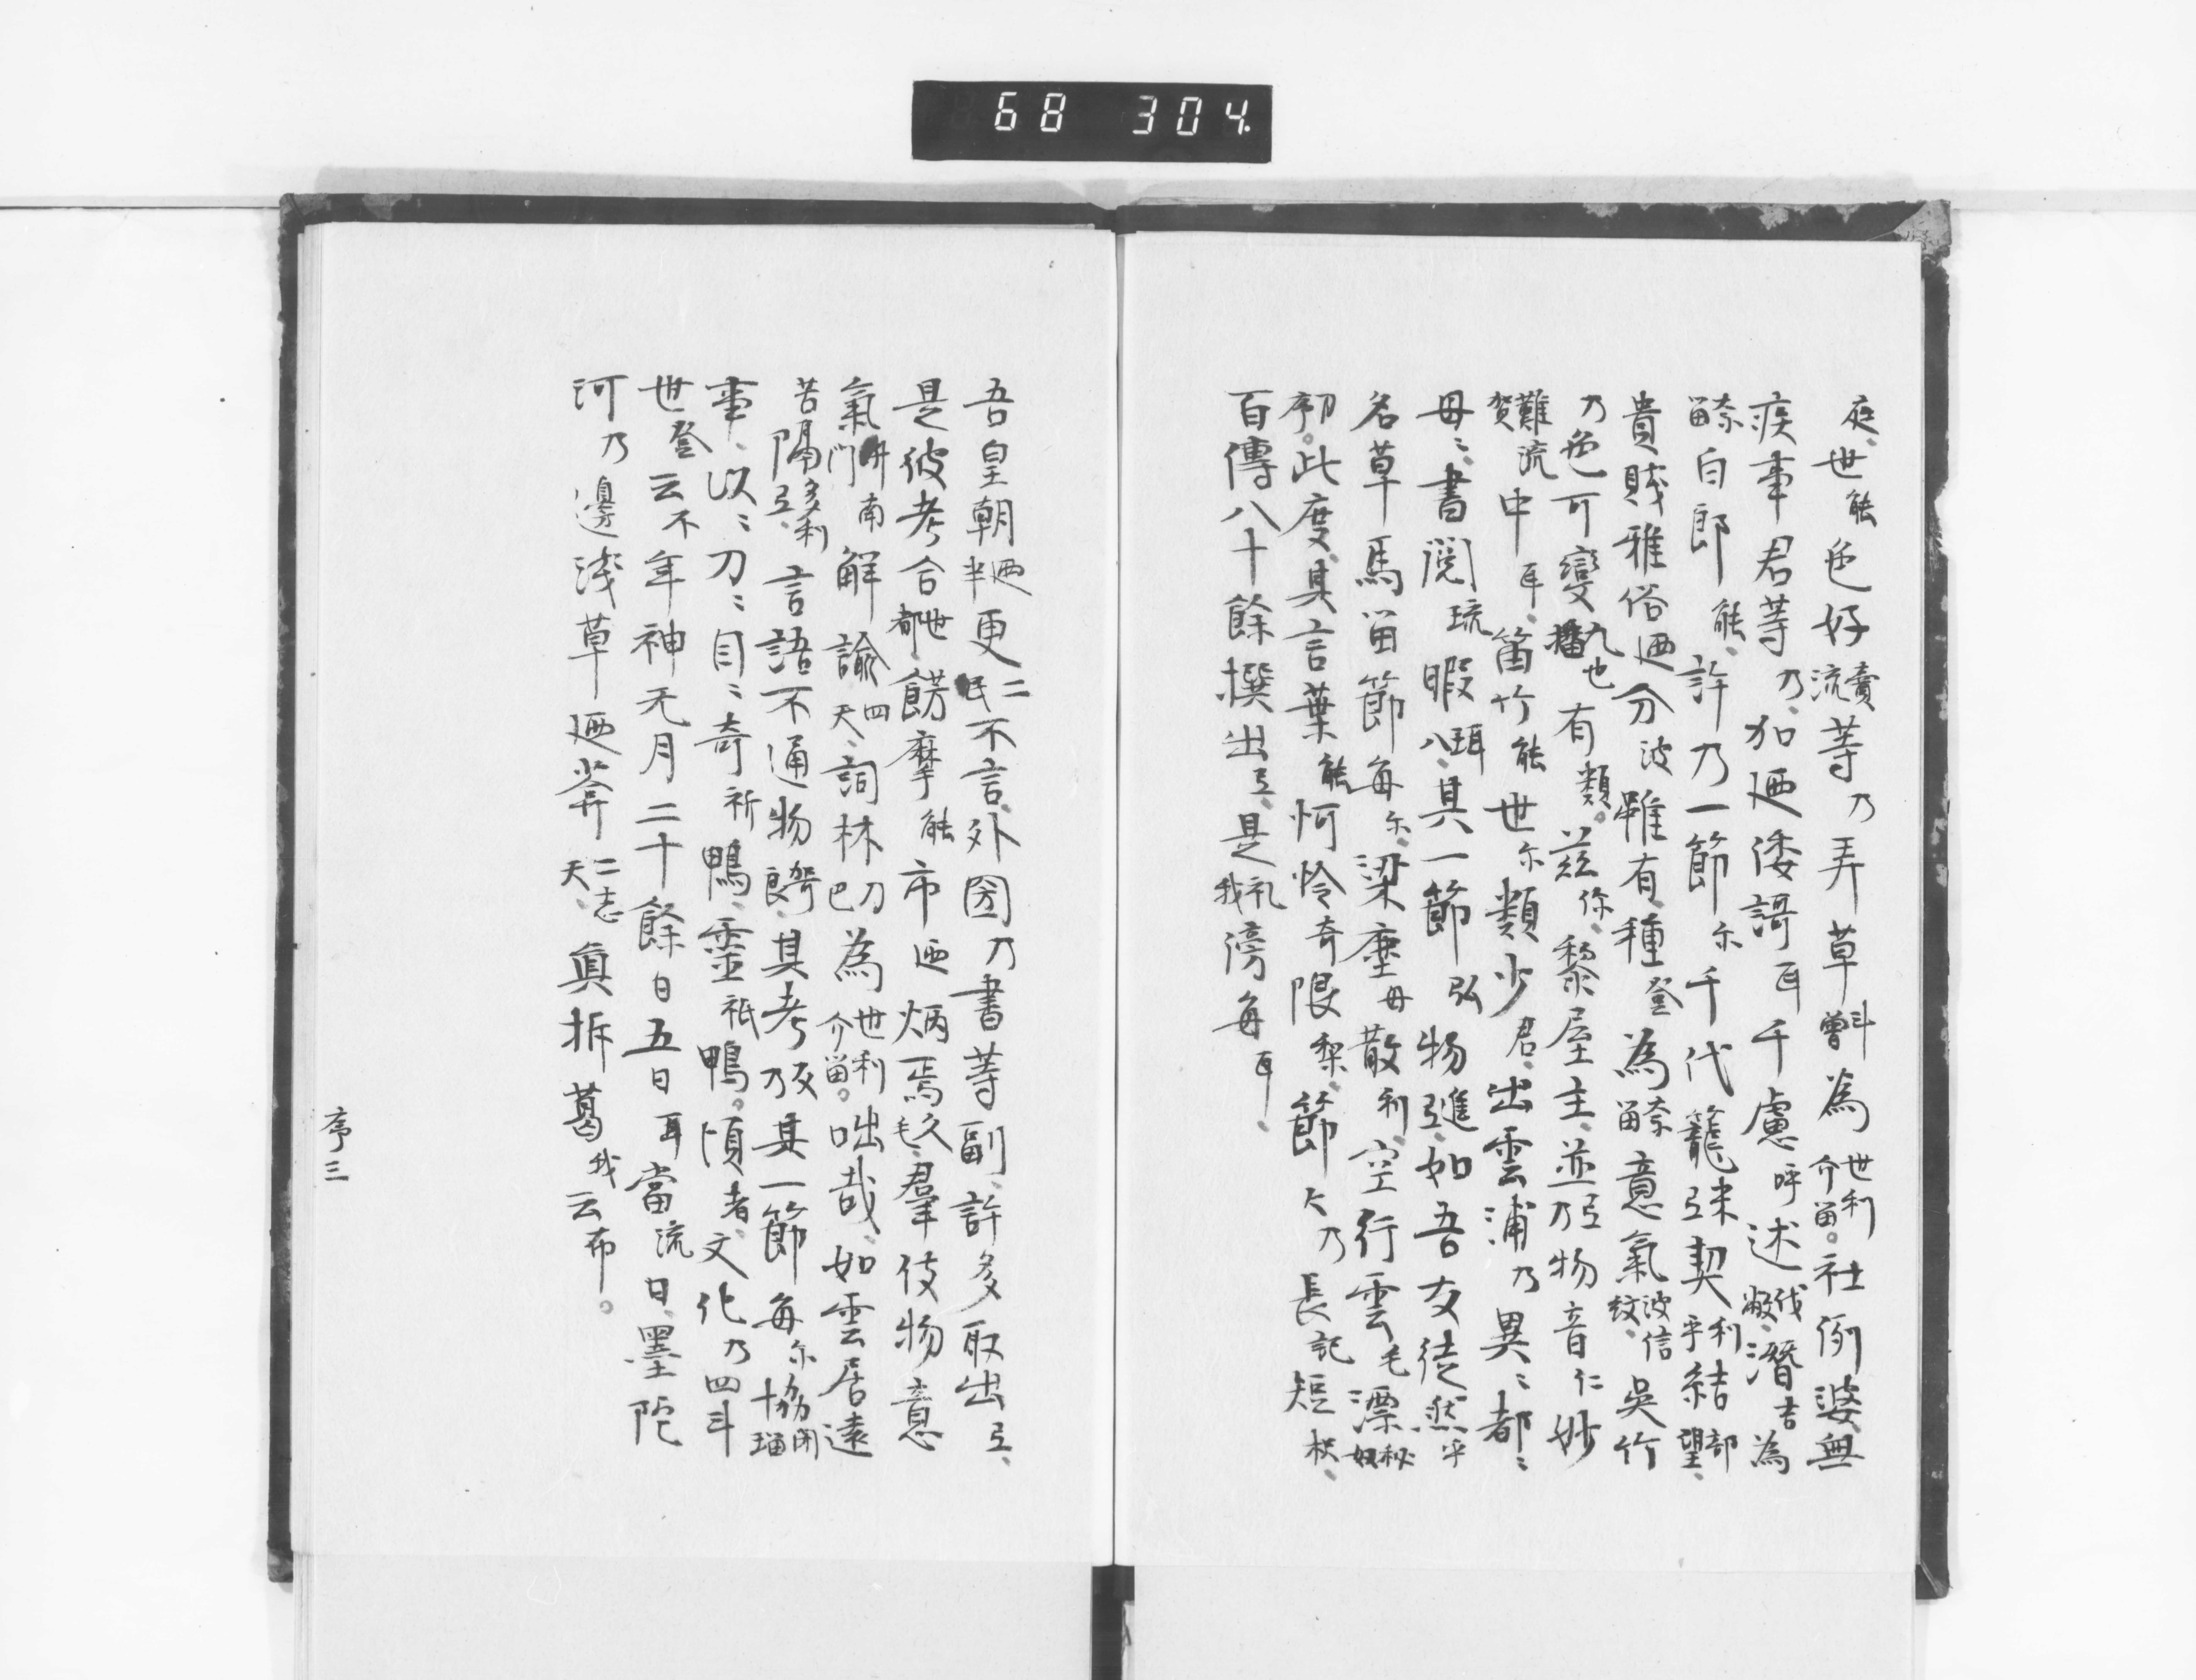 68 304
庭、世能色好流賣等乃弄草曾斗為世利介畄。社例婆無
疾事君等乃、加廼倭謌耳千慮呼述伐潛吉為
畄奈白郎能、許乃一節尓千代籠弖契利乎結部望、
貴賤雅俗廼分波雖有、種登為畄奈意氣波信紋、吳竹
乃色可變九也有類。茲你、黎屋主、並乃弖物音仁妙
賀難流中耳、笛竹能世尓類少君、出雲浦乃異〻都〻
母〻書閲琉暇珥八、其一節弘物進弖、如吾友徒然乎
名草馬畄節每尓、梁塵母散利、空行雲毛漂
初。此度、其言葉能怜奇限梨、節尺乃長記短枳、
百傳八十餘撰出弖、是礼我滂每耳、
吾皇朝廼半更二民不言、外圀乃書等副、許多取出弖、
是彼考合世都、餝摩能市廼炳焉久毛、羣伎物意
氣開門南解諭四天、詞林刀巴為世利介畄。咄哉、如雲居遠
苦隔多利弖、言語不通物良、其考乃友其一節每尓協
事、以〻刀〻目〻奇祈鴨、靈祇鴨。頃者、文化乃四斗
世登云不年神无月二十餘日五日耳當流日、墨陀
河乃邊淺草廼菴仁志天、眞拆葛我云布。
序三